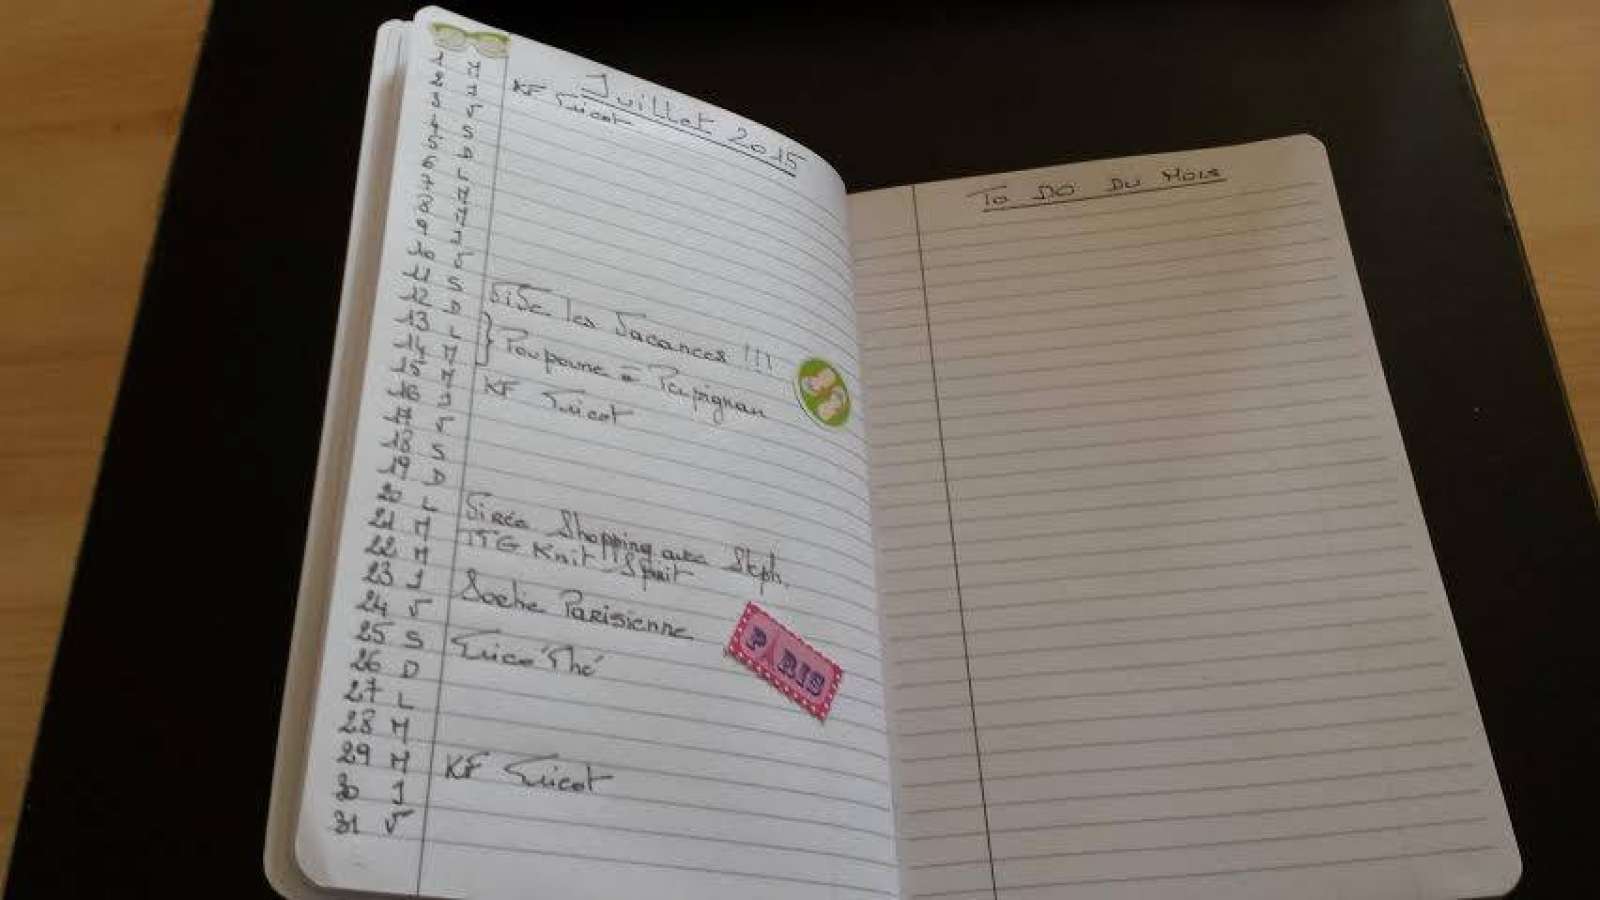 Juillet 2015
1 M KF Tricot
2 J
3 V
4 S
5 D
6 L
7 M
8 M
9 J
10 V
11 S ViVe les Vacances !!!
12 D
13 L Poupoune à Perpignan
14 M
15 M KF Tricot
16 J
17 V
18 S
19 D
20 L Virée Shopping avec Steph.
21 M ITG Knit-Spirit
22 M
23 J Sortie Parisienne
24 V
25 S Trico'Thé
26 D
27 L
28 M
29 M KF Tricot
30 J
31 V
PARIS
To Do Du Mois